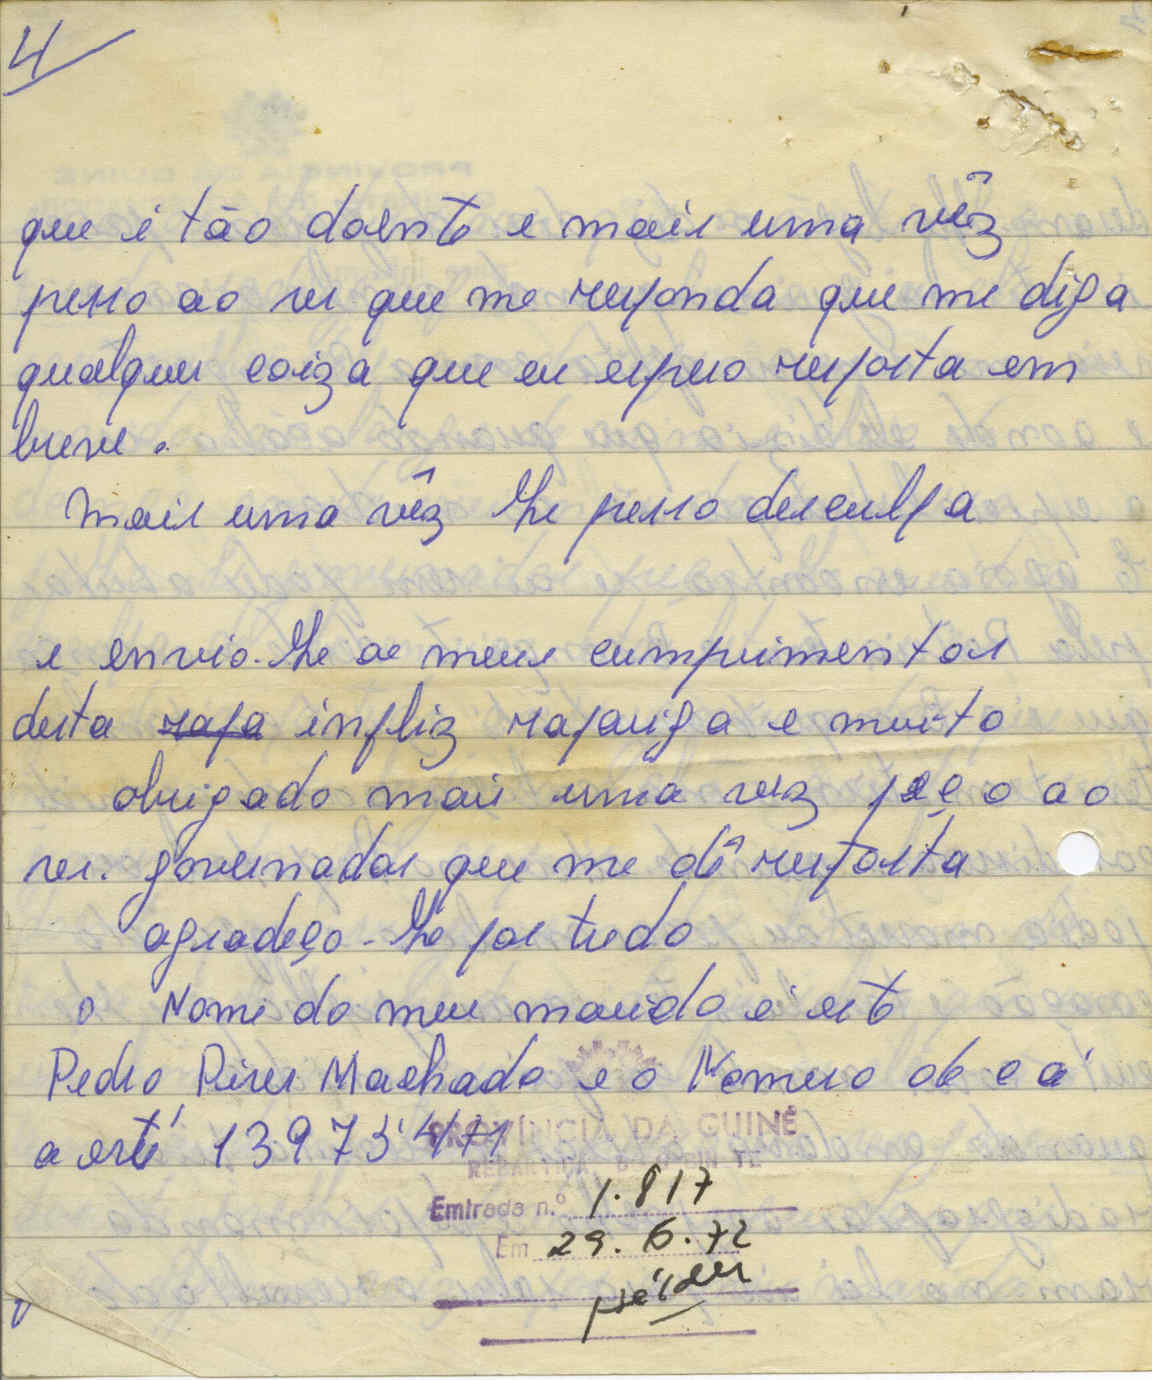 4
que é tão doente e mais uma vêz
pesso ao sr que me responda que me diga
qualquer coiza que eu espero resposta em
breve.
Mais uma vêz lhe pesso desculpa
e envio-lhe os meus cumprimentos
desta rapa infliz rapariga e muito
obrigado mais uma vez peço ao
sr. governador que me dê resposta
agradeço-lhe por tudo
o Nome do meu marido é este
Pedro Pires Machado e o Nomero
a esté 13973
PROVINCIA DA GUINÉ
REPARTIÇÃO DO GABINETE
Entrada n.º 1.817
Em 29.6.72
Hélder